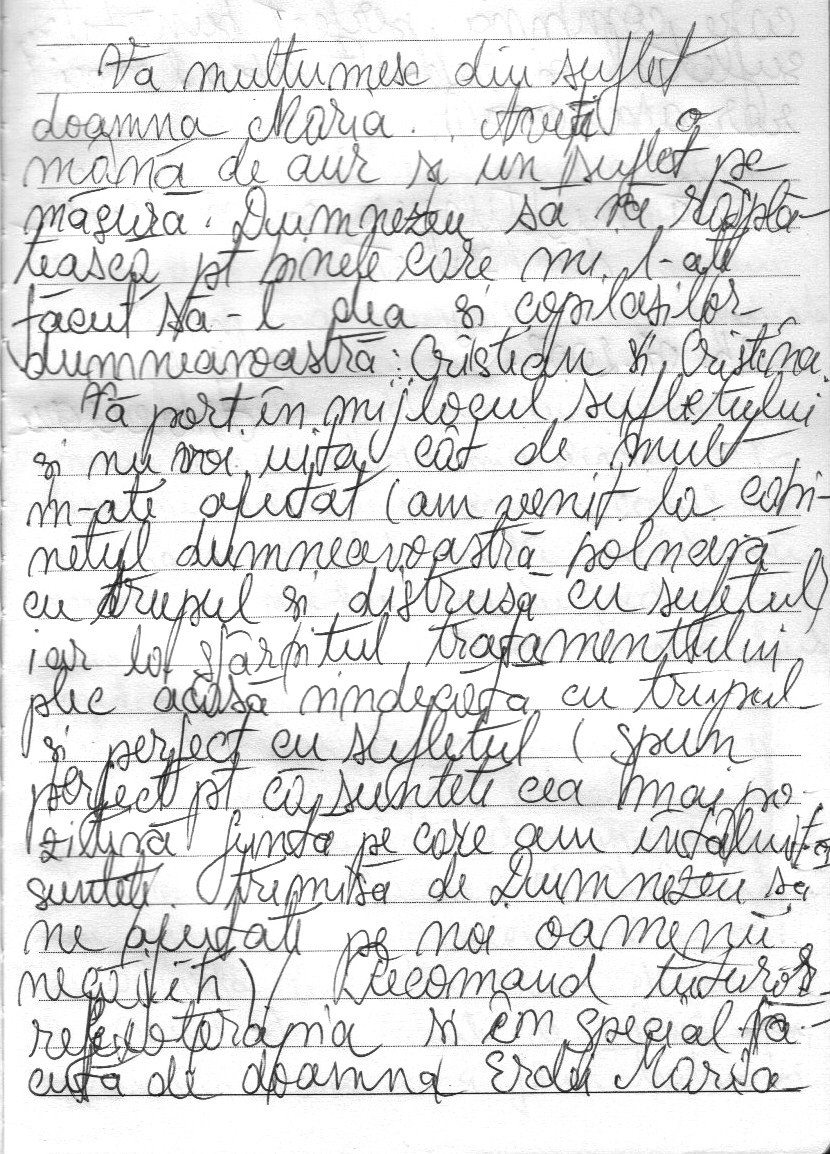 Vă multumesc din suflet
doamna Maria. Aveti o
mână de aur si un suflet pe
măsură. Dumnezeu să vă răsplă-
tească pt binele care mi l-ati
făcut să-l dea si copilasilor
dumneavoastră: Cristian si Cristina.
Vă port în mijlocul sufletului
si nu voi uita cât de mult
m-ati ajutat (am venit la cabi-
netul dumneavoastră bolnavă
cu trupul si distrusă cu sufletul)
iar la sfârsitul tratamentului
plec acasă vindecată cu trupul
si perfect cu sufletul (spun
perfect pt că sunteti cea mai po-
zitivă fiinta pe care am întâlnit-o
sunteti trimisă de Dumnezeu să
ne ajutati pe noi oamenii
necăjiti) Recomand tuturor
reflexoterapia si în special fă-
cută de doamna Erdei Maria